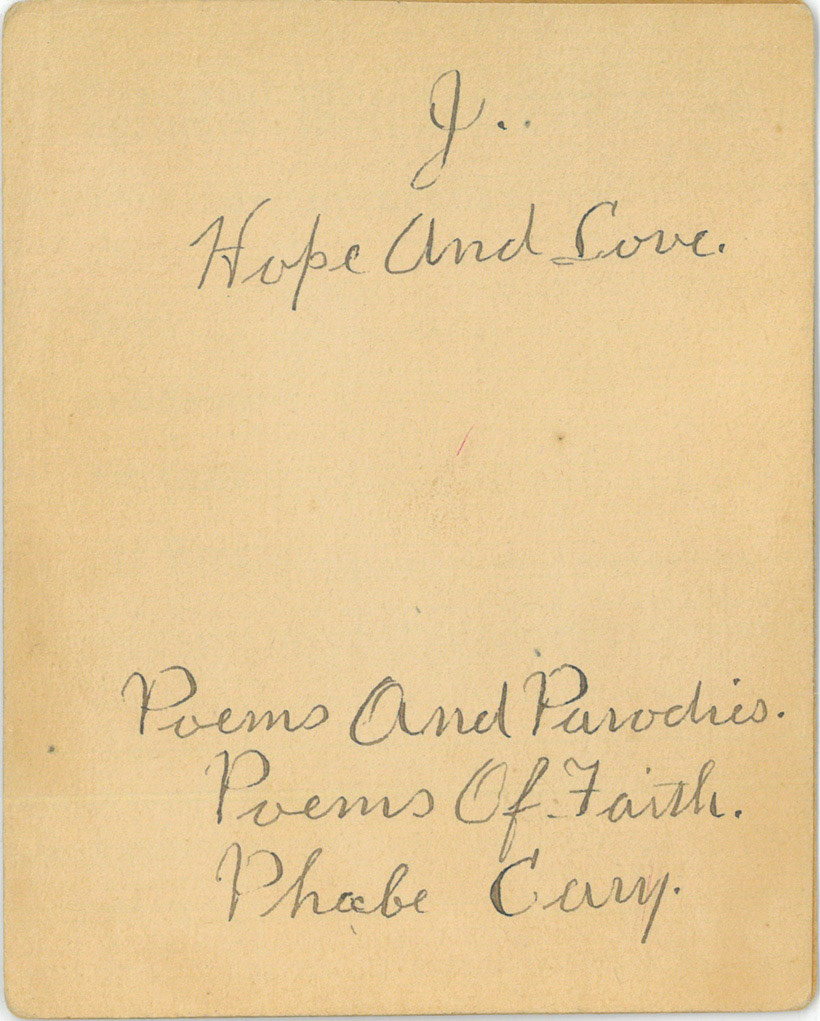 J..
Hope And Love.
Poems And Parodies.
Poems Of Faith.
Phœbe Cary.